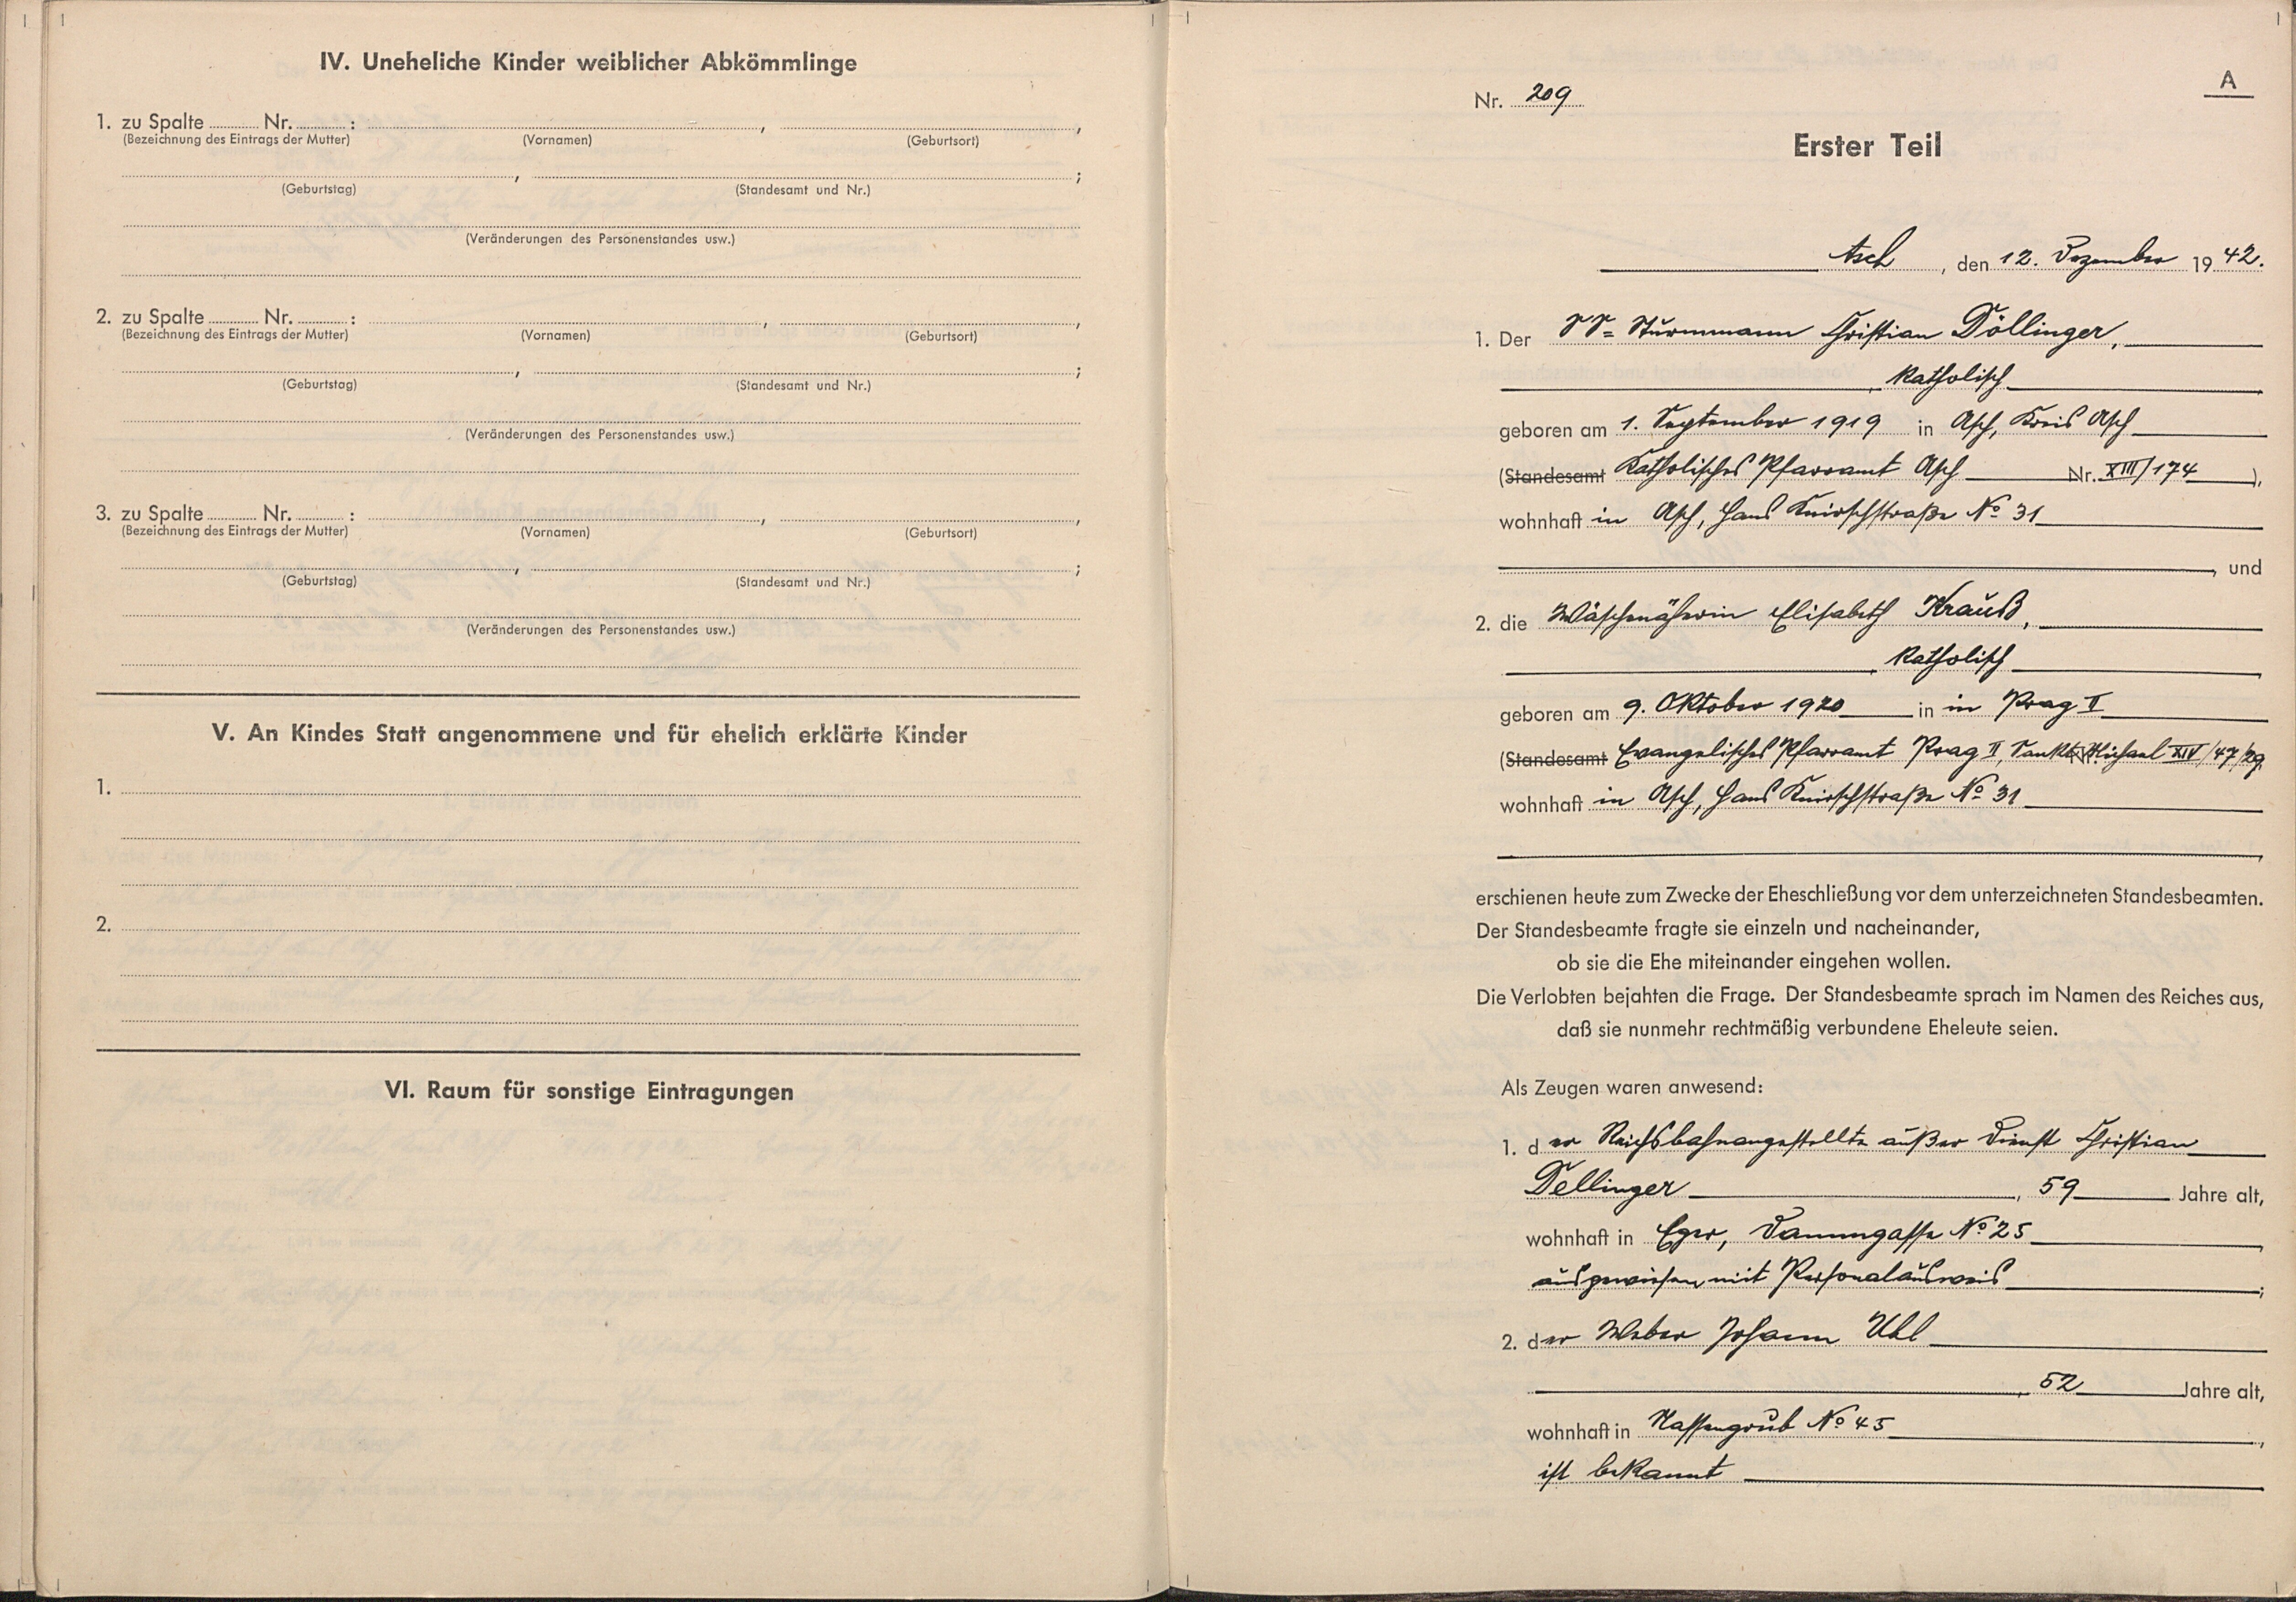 IV. Uneheliche Kinder weiblicher Abkömmlinge
1. zu Spalte ........ Nr. ........ : ........ , ........ ,
(Bezeichnung des Eintrags der Mutter) (Vornamen) (Geburtsort)
........ , ........ ;
(Geburtstag) (Standesamt und Nr.)
(Veränderungen des Personenstandes usw.)
2. zu Spalte ........ Nr. ........ : ........ , ........ ,
(Bezeichnung des Eintrags der Mutter) (Vornamen) (Geburtsort)
........ , ........ ;
(Geburtstag) (Standesamt und Nr.)
(Veränderungen des Personenstandes usw.)
3. zu Spalte ........ Nr. ........ : ........ , ........ ,
(Bezeichnung des Eintrags der Mutter) (Vornamen) (Geburtsort)
........ , ........ ;
(Geburtstag) (Standesamt und Nr.)
(Veränderungen des Personenstandes usw.)
V. An Kindes Statt angenommene und für ehelich erklärte Kinder
1.
2.
VI. Raum für sonstige Eintragungen
A
Nr. 209
Erster Teil
Asch, den 12. Dezember 1942.
1. Der SS-Sturmmann Christian Döllinger,
katholisch,
geboren am 1. September 1919 in Asch, Kreis Asch
(Standesamt Katholisches Pfarramt Asch Nr. XIII/174),
wohnhaft in Asch, Hans Knirschstraße No 31
, und
2. die Wäschenäherin Elisabeth Krauß,
katholisch,
geboren am 9. Oktober 1920 in in Prag II
(Standesamt Evangelisches Pfarramt Prag II, Sankt Michael Nr. XIV/47/29),
wohnhaft in Asch, Hans Knirschstraße No 31
,
erschienen heute zum Zwecke der Eheschließung vor dem unterzeichneten Standesbeamten.
Der Standesbeamte fragte sie einzeln und nacheinander,
ob sie die Ehe miteinander eingehen wollen.
Die Verlobten bejahten die Frage. Der Standesbeamte sprach im Namen des Reiches aus,
daß sie nunmehr rechtmäßig verbundene Eheleute seien.
Als Zeugen waren anwesend:
1. der Reichsbahnangestellte außer Dienst Christian
Dellinger, 59 Jahre alt,
wohnhaft in Eger, Dammgasse No 25,
ausgewiesen mit Personalausweis;
2. der Weber Johann Uhl
, 52 Jahre alt,
wohnhaft in Nassengrub No 45,
ist bekannt